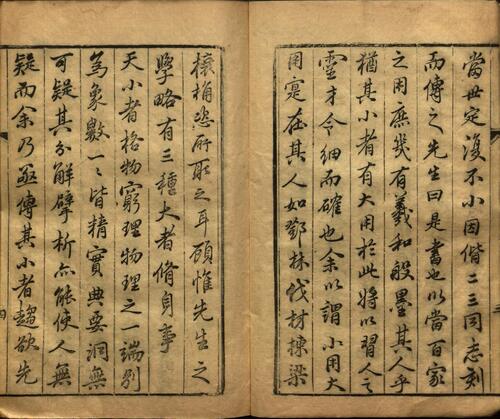 當世定復不小因偕二三同志刻
而傳之先生曰是書也以當百家
之用庶幾有羲和般墨其人乎
猶其小者有大用於此將以習人之
靈才令細而確也余以謂小用大
用寔在其人如鄧林伐材棟梁
榱桷恣所取之耳顧惟先生之
學略有三種大者脩身事
天小者格物窮理物理之一端別
為象數一一皆精實典要洞無
可疑其分解擘析亦能使人無
疑而余乃亟傳其小者趨欲先